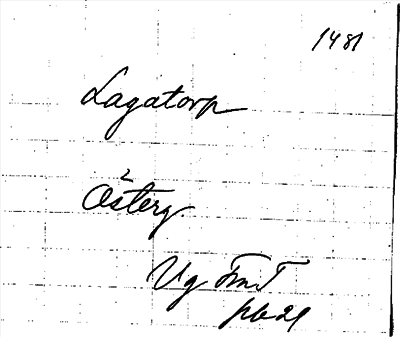 1481
Lagatorp
Österg.
Ug FmT